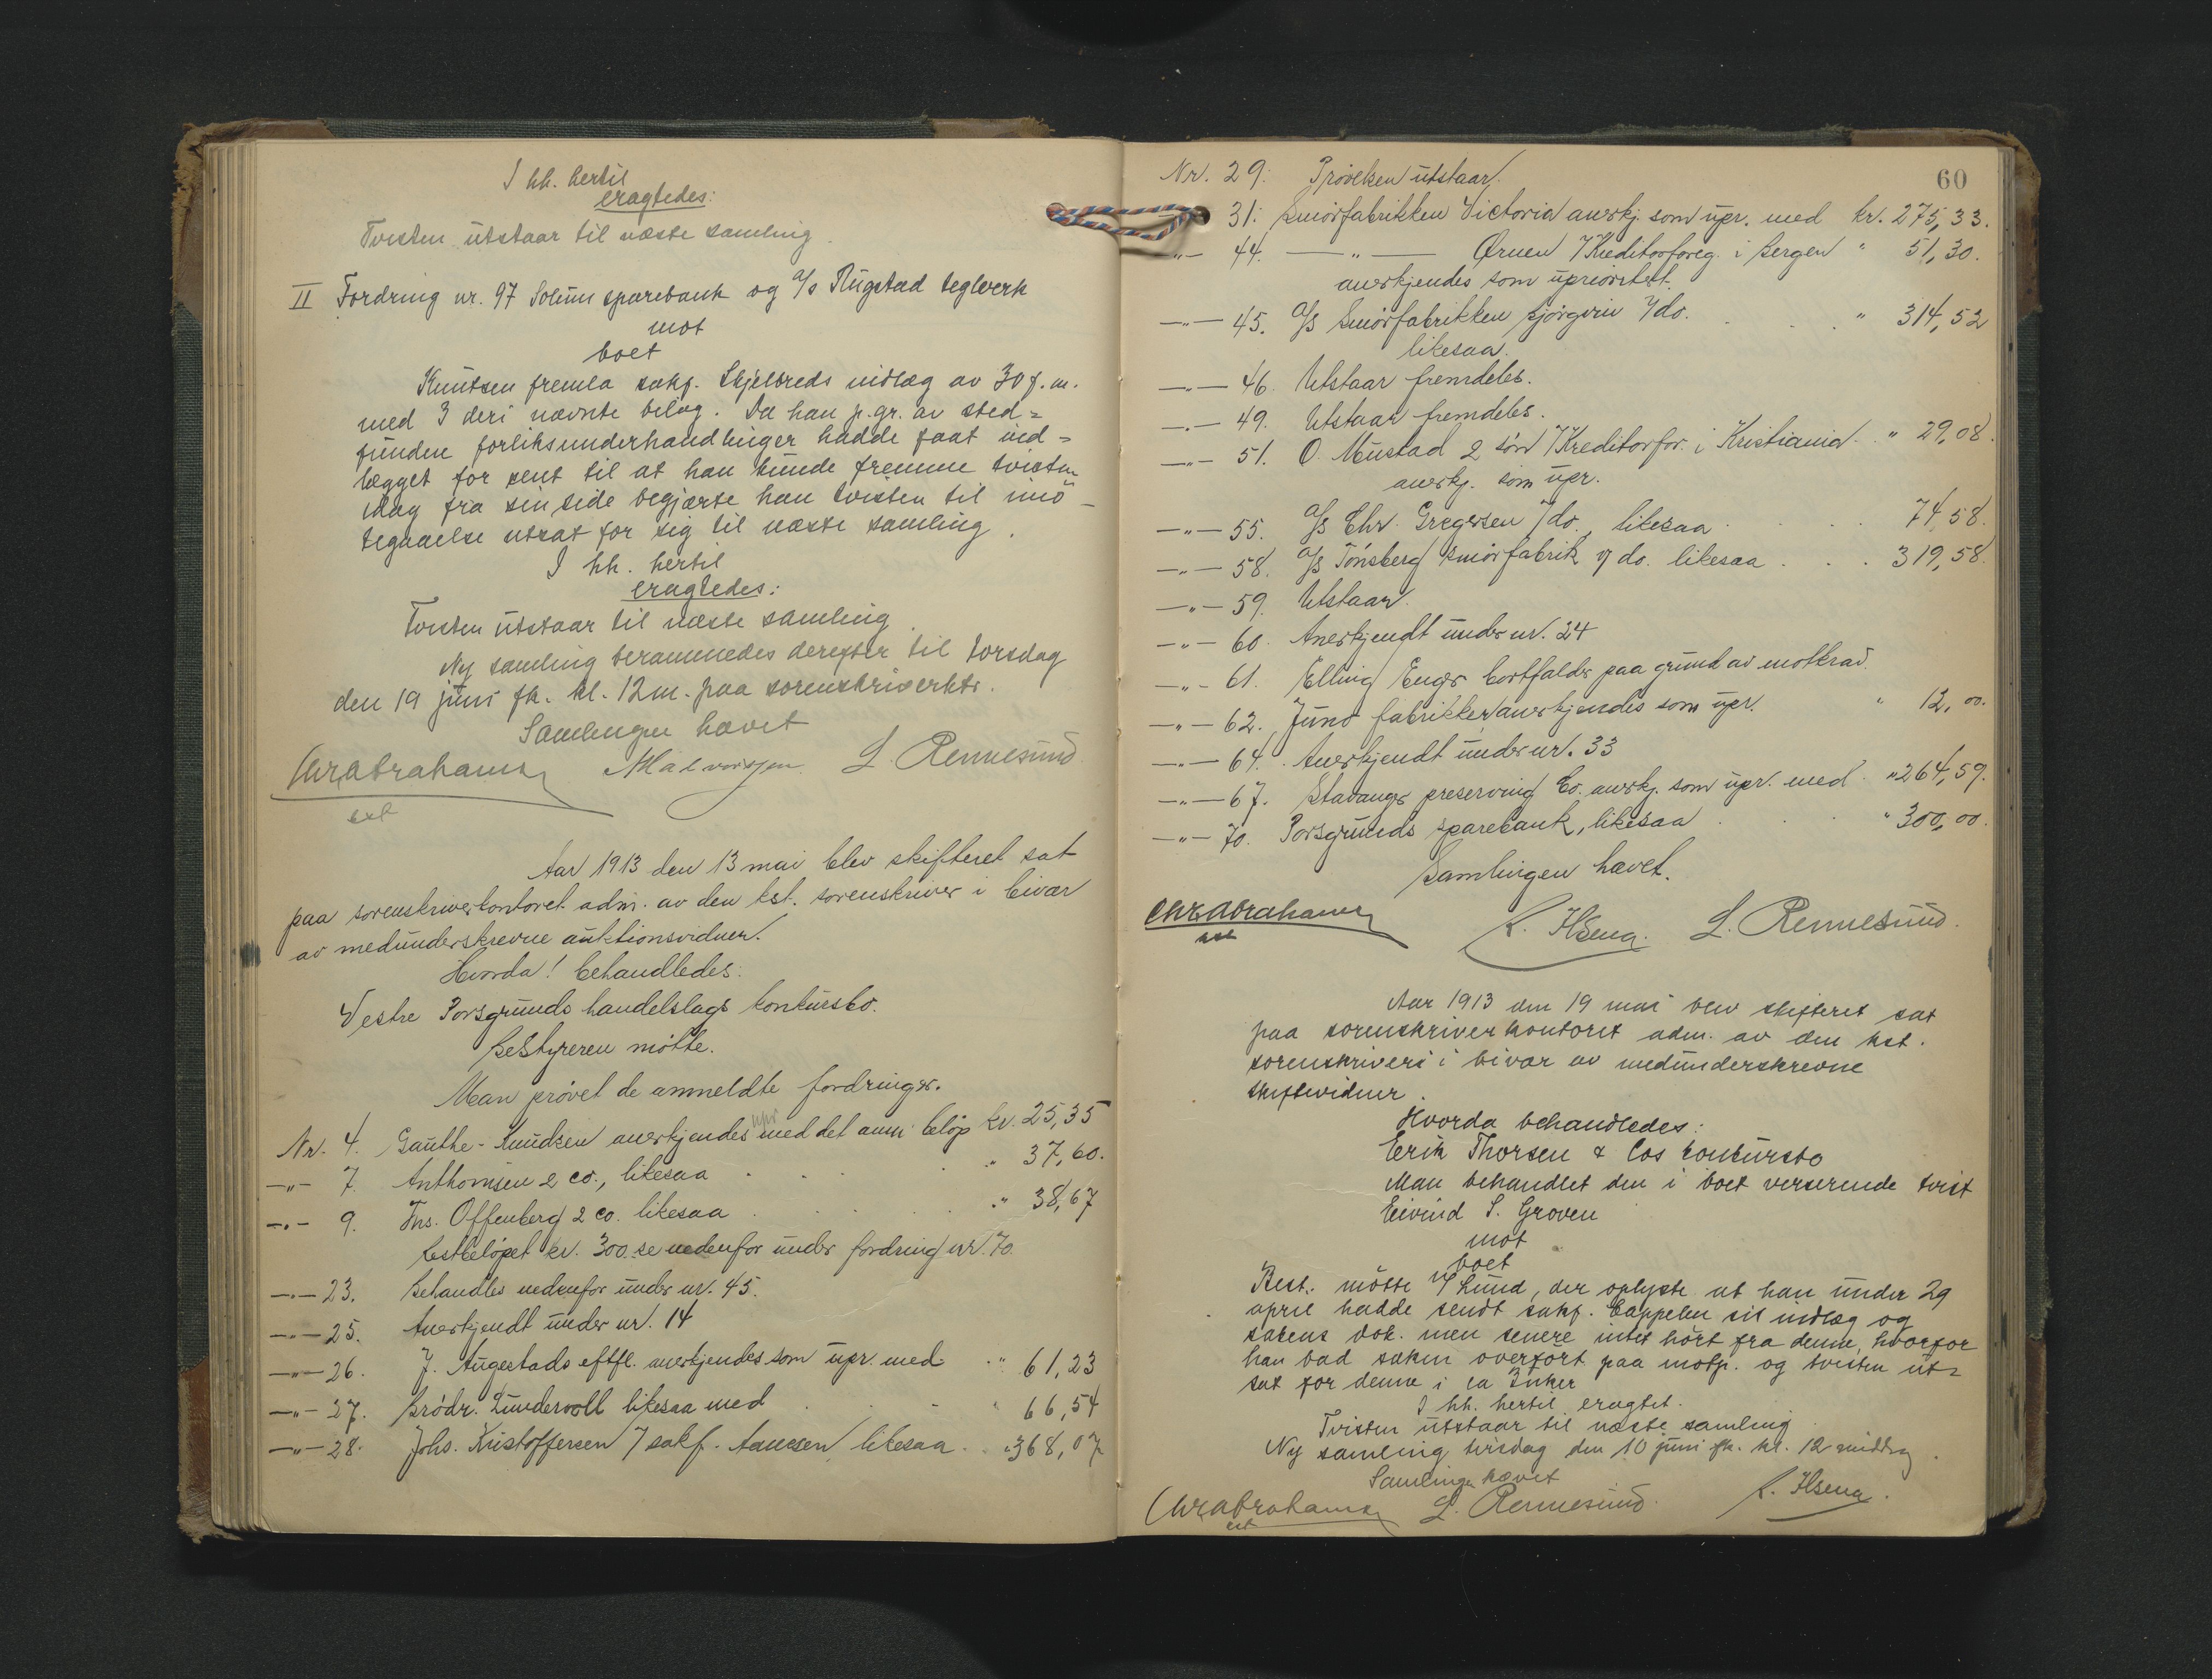 I hh. hertil
eragtedes:
Tvisten utstaar til næste samling.
II Fordring nr. 97 Solum sparebank og A/s Rugstad teglverk
mot
boet
Knutsen fremla sakf. Skjelbreds indlæg av 30 f. m.
med 3 deri nævnte bilag. Da han p. gr. av sted=
funden forliksunderhandlinger hadde faat ind=
lægget for sent til at han kunde fremme tvisten
idag fra sin side begjærte han tvisten til imö-
tegaaelse utsat for sig til næste samling.
I hh. hertil
eragtedes:
Tvisten utstaar til næste samling.
Ny samling berammedes derefter til torsdag
den 19 juni fk. kl. 12 m. paa sorenskriverktr.
Samlingen hævet
Chr Abrahams L. Rennesund
cst
Aar 1913 den 13 mai blev skifteret sat
paa sorenskriverkontoret adm. av den kst. sorenskriver i bivær
av medunderskrevne auktionsvidner.
Hvorda! behandledes:
Vestre Porsgrunds handelslags konkursbo.
Bestyreren mötte.
Man prövet de anmeldte fordringer.
Nr. 4. Gauthe-Knudsen anerkjendes upr med det anm. belöp kr. 25,35
—"— 7. Anthomsen & co., likesaa " 37,60.
—"— 9. Fns. Offenberg & co. likesaa " 38,67
Restbelöpet kr. 300 se nedenfor under fordring nr. 70.
—"— 23. Behandles nedenfor under nr. 45.
—"— 25. Anerkjendt under nr. 14
—"— 26. J. Augestads eftfl. anerkjendes som upr. med " 61,23
—"— 27. Brödr. Lundevoll likesaa med " 66,54
—"— 28. Johs. Kristoffersen / sakf. Aanesen, likesaa " 368,07
60
Nr. 29: Prövelsen utstaar.
31: Smörfabrikken Victoria anerkj. som upr. med kr. 275,33.
—"— 44. —"— Örnen / Kreditorforeg. i Bergen " 51,30.
anerkjendes som uprioritert.
—"— 45. A/s Smörfabrikken Björgvin / do. " 314,52
likesaa.
—"— 46. Utstaar fremdeles.
—"— 49. Utstaar fremdeles.
—"— 51. O. Mustad & sön / Kreditorfor. i Kristiania " 29,08.
anerkj. som upr.
—"— 55. A/s Chr. Gregersen / do., likesaa 74,58.
—"— 58. A/s Tönsberg smörfabrik / do. likesaa 319,58.
—"— 59. Utstaar.
—"— 60. Anerkjendt under nr. 24
—"— 61. Elling Enger bortfalder paa grund av motkrav.
—"— 62. Juno fabrikker anerkjendes som upr. " 12,00.
—"— 64. Anerkjendt under nr. 33
—"— 67. Stavanger preserving Co. anerkj. som upr. med " 264,59.
—"— 70. Porsgrunds sparebank, likesaa " 300,00.
Samlingen hævet.
Chr Abrahams L. Rennesund.
cst
Aar 1913 den 19 mai blev skifteret sat
paa sorenskriverkontoret adm. av den kst.
sorenskriver i bivær av medunderskrevne
skiftevidner.
Hvorda behandledes:
Erik Thorsen & Cos konkursbo
Man behandlet den i boet verserende tvist
Eivind S. Groven
mot
boet
Best. mötte v/ Lund, der oplyste at han under 29
april hadde sendt sakf. Cappelen sit indlæg og
sakens dok. men senere intet hört fra denne, hvorfor
han bad saken overfört paa motp. og tvisten ut=
sat for denne i ca 3 uker
I hh. hertil eragtet.
Tvisten utstaar til næste samling.
Ny samling tirsdag den 10 juni fk. kl. 12 middag.
Samlingen hævet
Chr Abrahams L. Rennesund.
cst